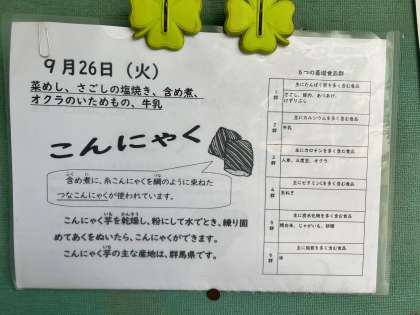 9月26日（火）
菜めし、さごしの塩焼き、含め煮、
オクラのいためもの、牛乳
こんにゃく
含め煮に、糸こんにゃくを綱のように束ねた
つなこんにゃくが使われています。
こんにゃく芋を乾燥し、粉にして水でとき、練り固
めてあくをぬいたら、こんにゃくができます。
こんにゃく芋の主な産地は、群馬県です。
6つの基礎食品群
1群
主にたんぱく質を多く含む食品
さごし、豚肉、あつあげ、
けずりぶし
2群
主にカルシウムを多く含む食品
牛乳
3群
主にカロテンを多く含む食品
人参、小松菜、オクラ
4群
主にビタミンCを多く含む食品
玉ねぎ
5群
主に炭水化物を多く含む食品
精白米、じゃがいも、砂糖
6群
主に脂質を多く含む食品
油